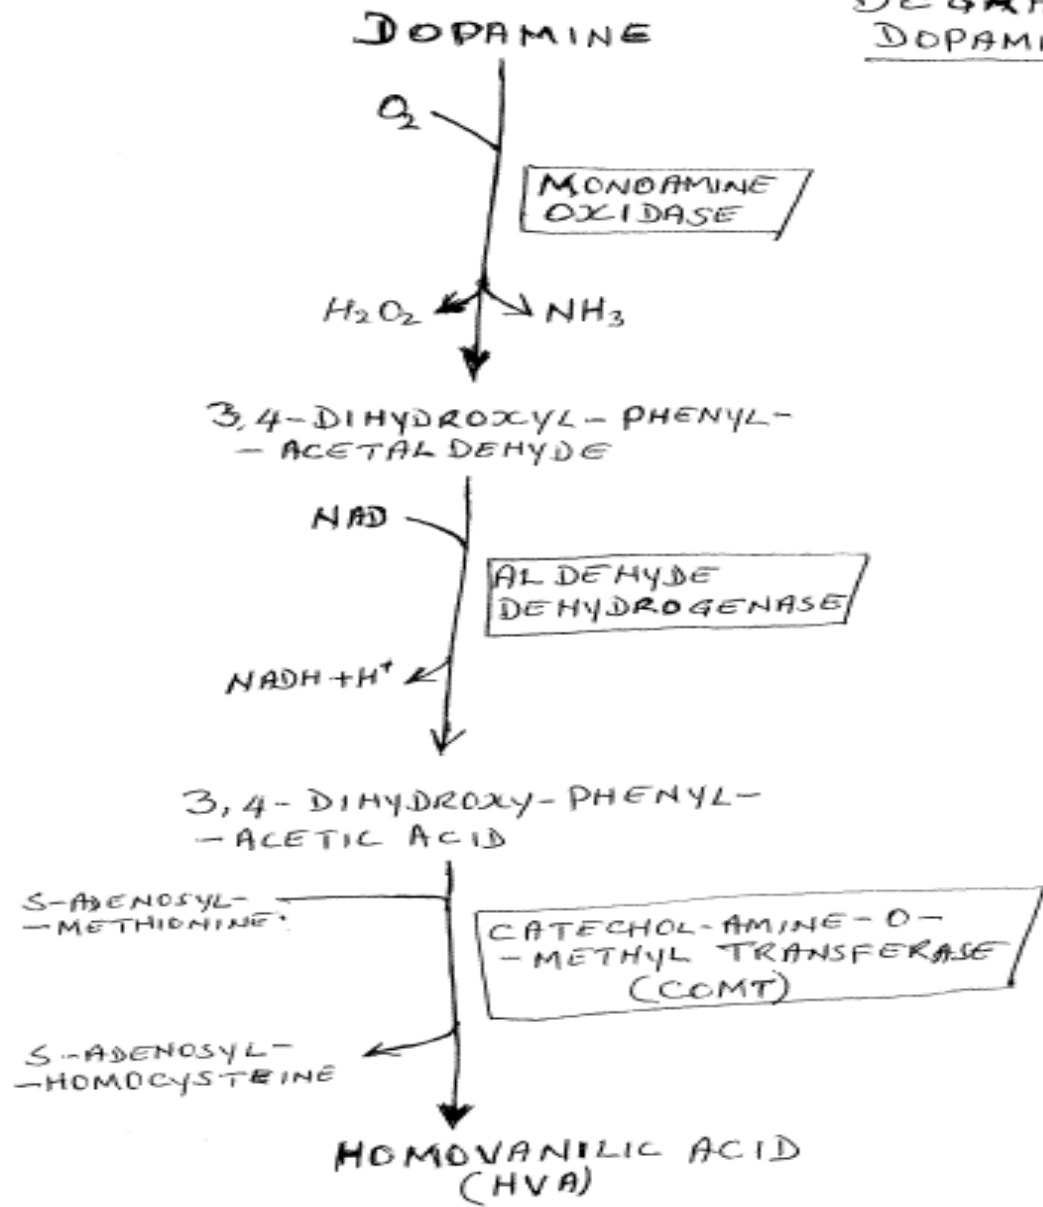 DOPAMINE
DOPAMI
O2
MONOAMINE
OXIDASE
H2O2
NH3
3,4-DIHYDROXYL-PHENYL-
- ACETALDEHYDE
NAD
ALDEHYDE
DEHYDROGENASE
NADH+H+
3,4-DIHYDROXY-PHENYL-
-ACETIC ACID
S-ADENOSYL-
-METHIONINE
CATECHOL-AMINE-O-
-METHYL TRANSFERASE
(COMT)
S-ADENOSYL-
-HOMOCYSTEINE
HOMOVANILIC ACID
(HVA)